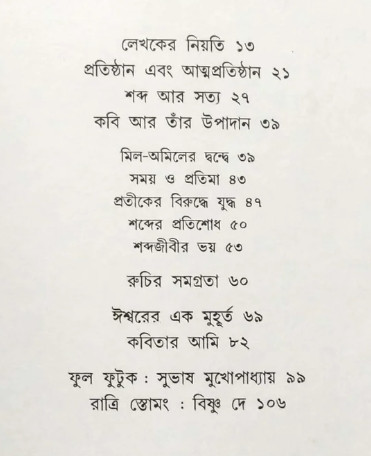 লেখকের নিয়তি ১৩
প্রতিষ্ঠান এবং আত্মপ্রতিষ্ঠান ২১
শব্দ আর সত্য ২৭
কবি আর তাঁর উপাদান ৩৯
মিল-অমিলের দ্বন্দ্বে ৩৯
সময় ও প্রতিমা ৪৩
প্রতীকের বিরুদ্ধে যুদ্ধ ৪৭
শব্দের প্রতিশোধ ৫০
শব্দজীবীর ভয় ৫৩
রুচির সমগ্রতা ৬০
ঈশ্বরের এক মুহূর্ত ৬৯
কবিতার আমি ৮২
ফুল ফুটুক : সুভাষ মুখোপাধ্যায় ৯৯
রাত্রি স্তোমং : বিষ্ণু দে ১০৬